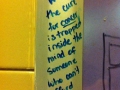 the cure
for cancer
is trapped
inside the
mind of
someone
who can't
afford